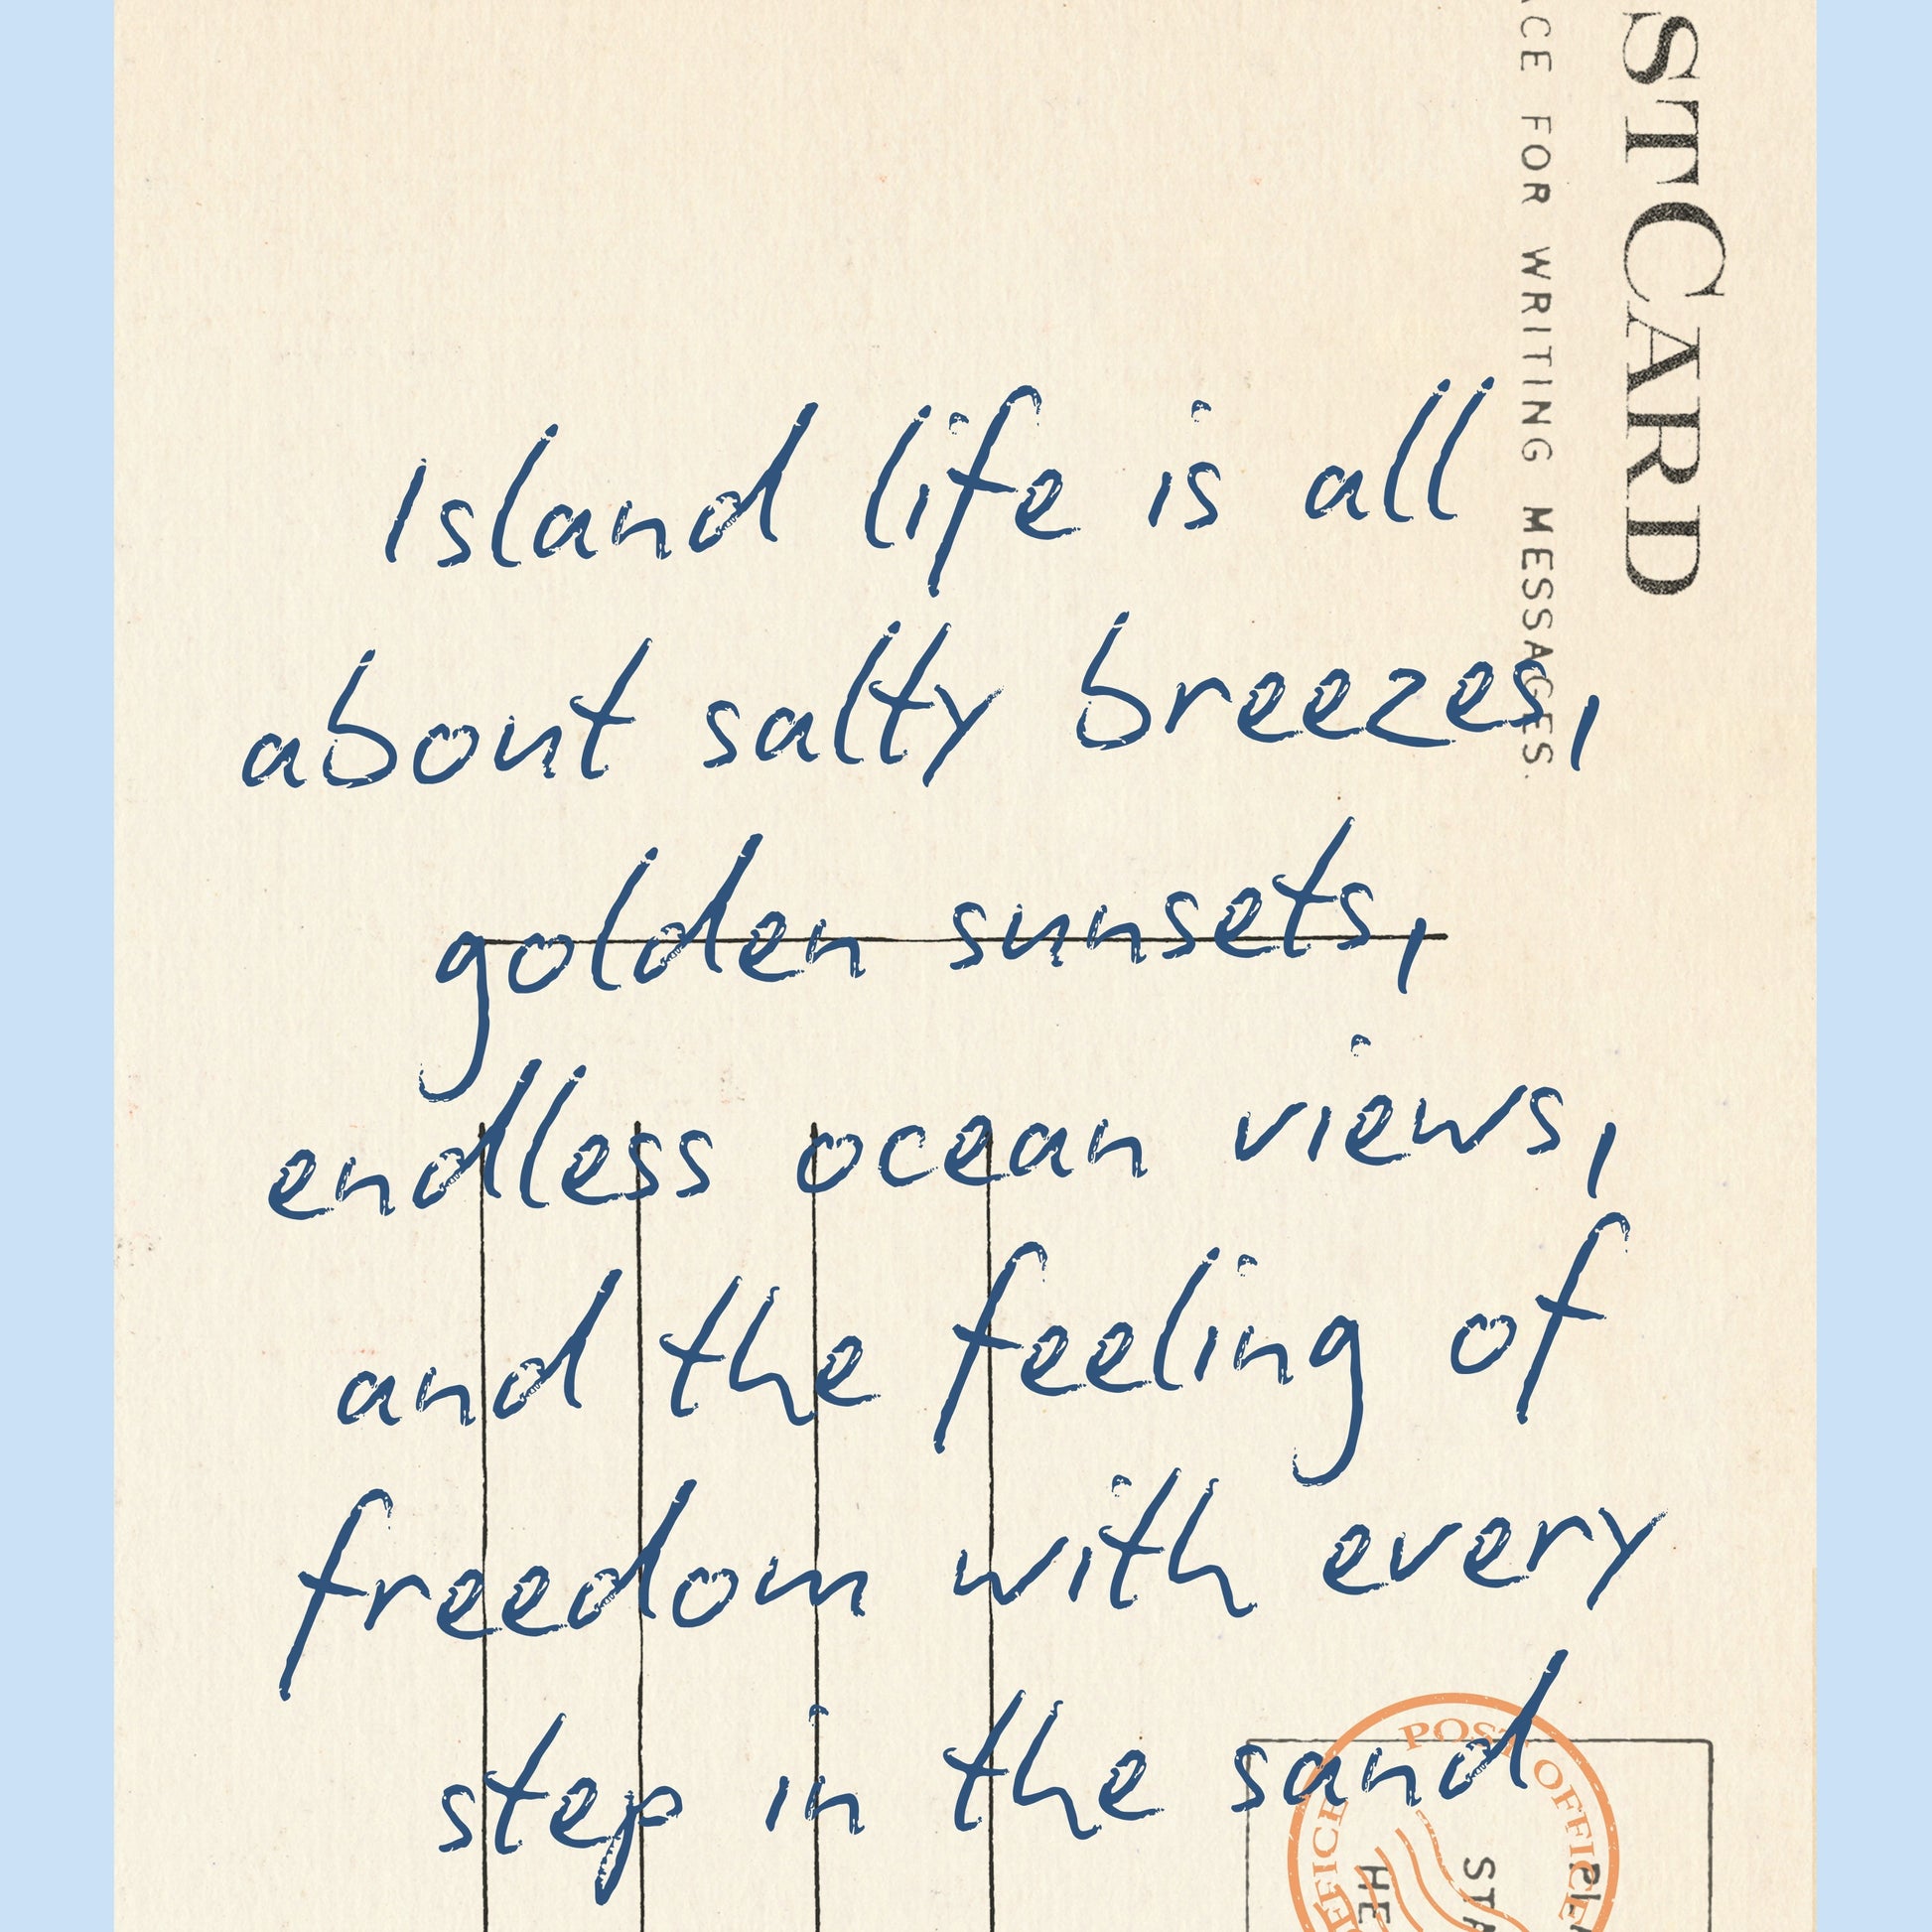 STCARD
ACE FOR WRITING MESSAGES.
Island life is all
about salty breezes,
golden sunsets,
endless ocean views,
and the feeling of
freedom with every
step in the sand
POST OFFICE
OFFICE